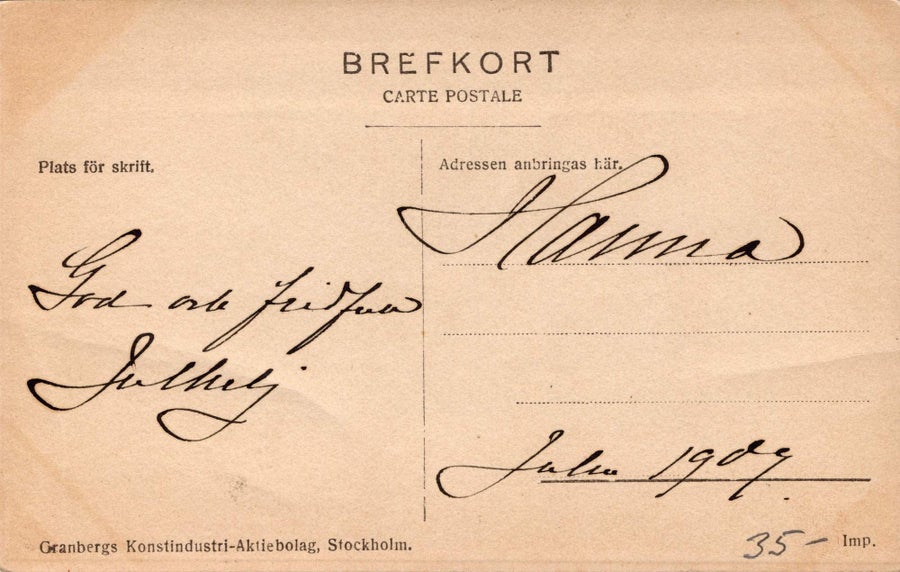 BREFKORT
CARTE POSTALE
Plats för skrift.
Adressen anbringas här.
Hanna
God och fridfull
Julhelg
Julen 1909.
Granbergs Konstindustri-Aktiebolag, Stockholm.
35-
Imp.